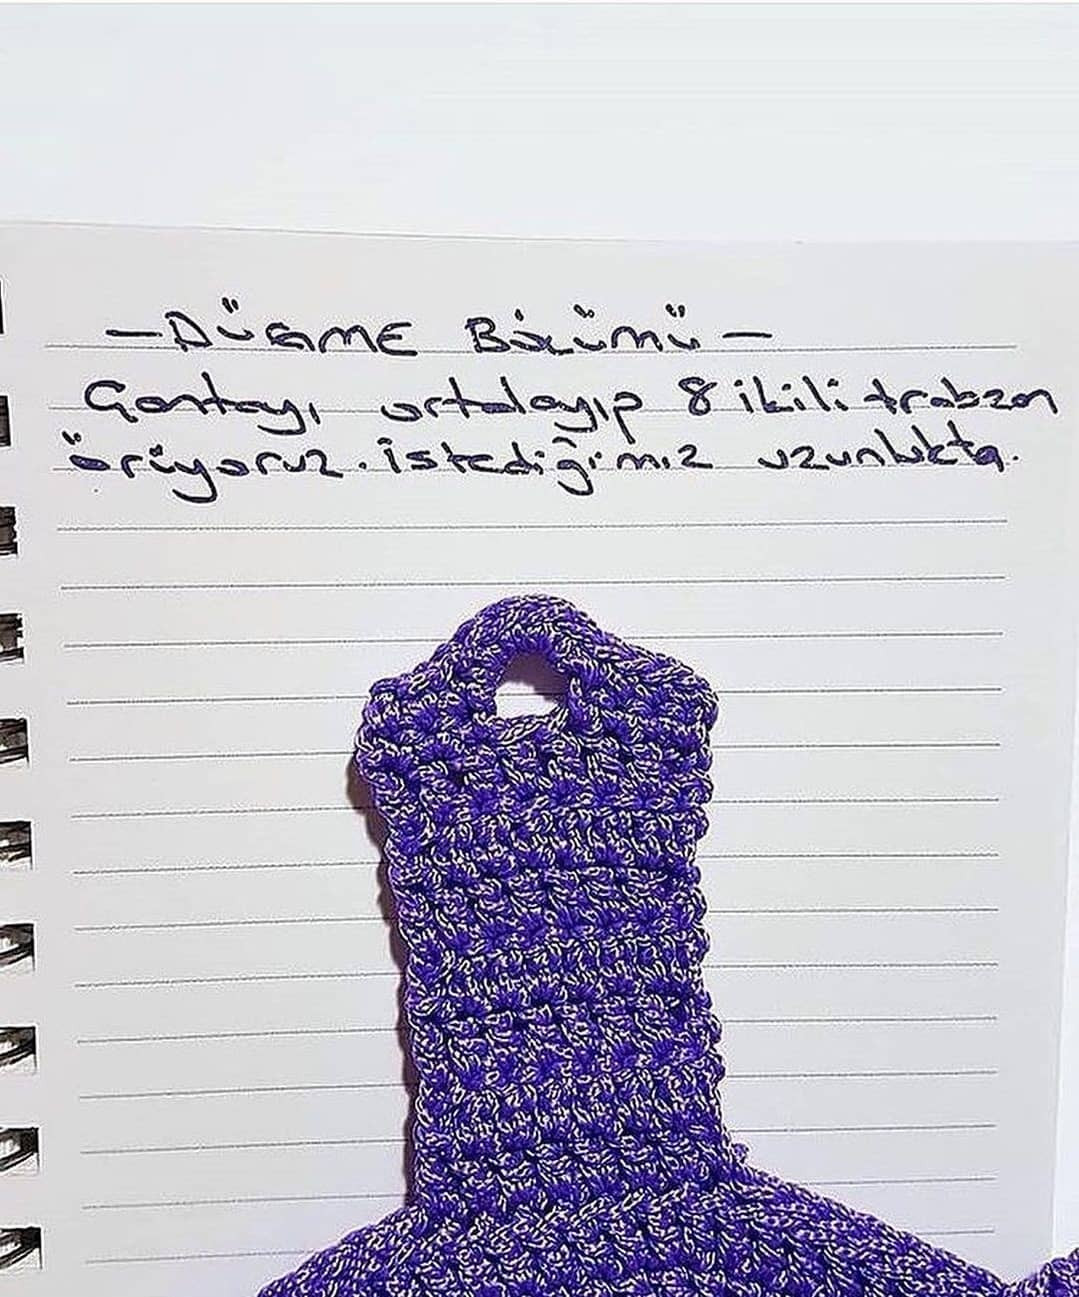 — DÜGME BÖLÜMÜ —
Çantayı ortalayıp 8 ikili trabzan
örüyoruz. İstediğimiz uzunlukta.